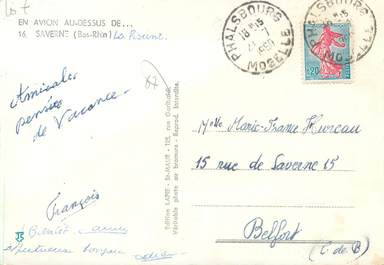 Lot
EN AVION AU-DESSUS DE...
16. SAVERNE (Bas-Rhin)
Amicales
pensées
de Vacance
François
Bientôt
Edition LAPIE - St-MAUR - 128, rue Garibaldi
Véritable photo au bromure - Reprod. interdite.
PHALSBOURG
18 H 15
MOSELLE
0,20
Melle Marie-France Hureau
15 rue de Saverne 15
Belfort
(T. de B)